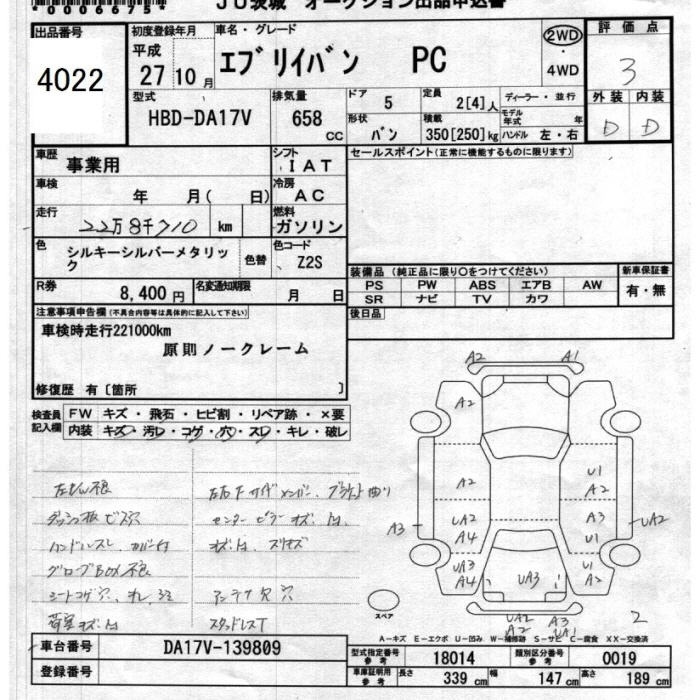 00066754
JU茨城 オークション出品申込書
出品番号
4022
初度登録年月
平成
27 10 月
車名・グレード
エブリイバン PC
2WD
・
4WD
評価点
3
外装 内装
D D
型式
HBD-DA17V
排気量
658 CC
ドア 5
定員 2[4]人
ディーラー・並行
モデル年式 年
形状 バン
350[250]kg
ハンドル 左・右
車歴 事業用
シフト IAT
セールスポイント(正常に機能するものに限ります)
車検 年 月( 日)
冷房 AC
走行 22万8千710 km
燃料 ガソリン
色 シルキーシルバーメタリック
色替
色コード Z2S
R券 8,400 円
名変通知期限 月 日
装備品 (純正品に限り○をつけてください)
PS PW ABS エアB AW
SR ナビ TV カワ
新車保証書
有・無
後日品
注意事項申告欄(不具合内容等は具体的に記入して下さい)
車検時走行221000km
原則ノークレーム
修復歴 有〔箇所 〕
検査員記入欄
FW キズ・飛石・ヒビ割・リペア跡・×要
内装 キズ・汚レ・コゲ・穴・スレ・キレ・破レ
ダッシュ板ビス穴
ハンドルスレ、カバー付
グローブBOX不良
アンテナ欠 穴
スタッドレスT
A2 A1
A2
U1
A2
A3
UA2
A4
A3
U1
UA2
UA3
A4
UA3
U1
A2
UA2
A2
A3
UA1
2
スペア
A-キズ E-エクボ U-凹み W-補修跡 S-サビ C-腐食 XX-交換済
車台番号 DA17V-139809
登録番号
型式指定番号 参考 18014
類別区分番号 参考 0019
車庫証明用 参考 長さ 339 cm 幅 147 cm 高さ 189 cm